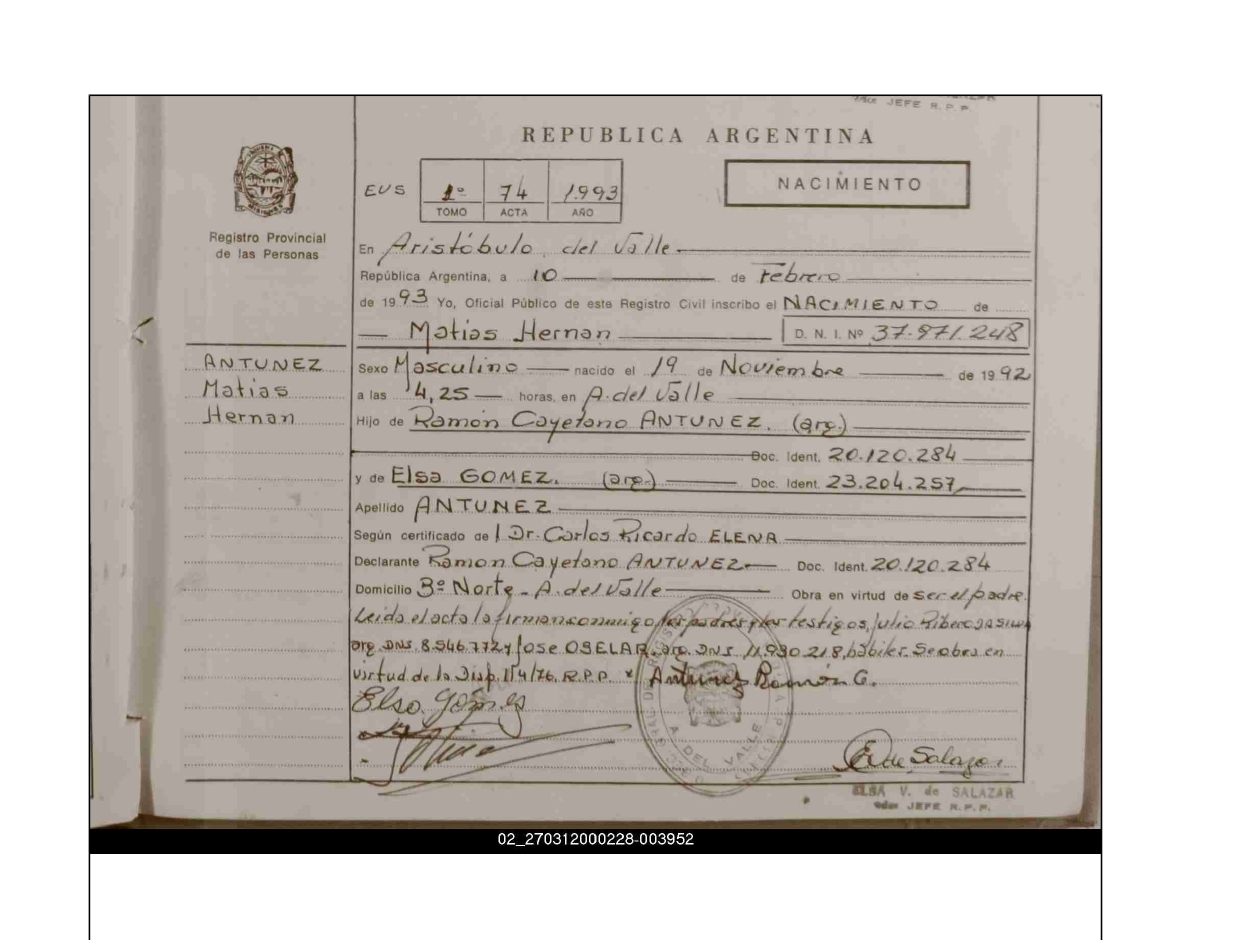 JEFE R. P. P.
REPUBLICA ARGENTINA
EUS 1º 74 1.993
TOMO ACTA AÑO
NACIMIENTO
Registro Provincial
de las Personas
En Aristóbulo del Valle
República Argentina, a 10 de Febrero
de 1993 Yo, Oficial Público de este Registro Civil inscribo el NACIMIENTO de
Matias Hernan D. N. I. Nº 37.971.248
ANTUNEZ
Matias
Hernan
Sexo Masculino nacido el 19 de Noviembre de 1992
a las 4,25 horas, en A. del Valle
Hijo de Ramón Cayetano ANTUNEZ. (arg.)
Doc. Ident. 20.120.284
y de Elsa GOMEZ. (arg.) Doc. Ident. 23.204.257
Apellido ANTUNEZ
Según certificado de Dr. Carlos Ricardo ELENA
Declarante Ramon Cayetano ANTUNEZ Doc. Ident. 20.120.284
Domicilio 3º Norte - A. del Valle Obra en virtud de ser el padre.
Leida el acta la firman conmigo los padres y los testigos, Julio Ribero
arg. DNI 8.546.772 y Jose OSELAR, arg. DNI 11.930.218, hábiles. Se obra en
virtud de la Disp. 1/4/76. R.P.P. Antunez Ramón C.
Elsa Gómez
A. DEL VALLE
E. V. de Salazar
ELSA V. de SALAZAR
JEFE R.P.P.
02_270312000228-003952